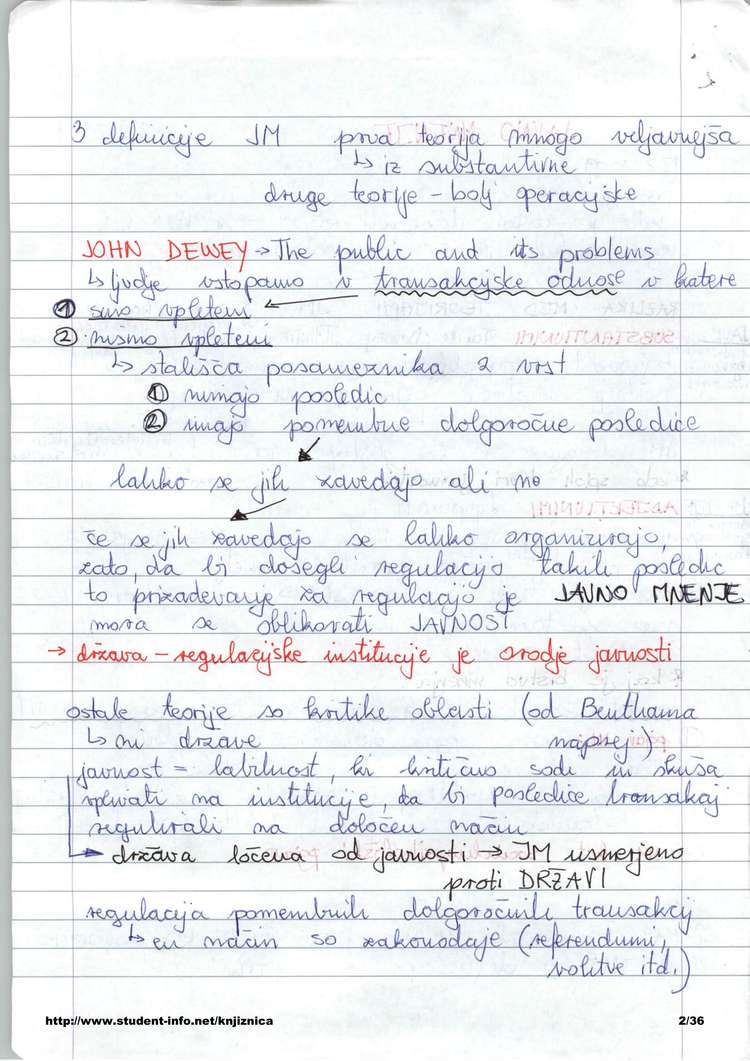 3 definicije JM prva teorija mnogo veljavnejša
↳ iz substantivne
druge teorije - bolj operacijske
JOHN DEWEY → The public and its problems
↳ ljudje vstopamo v transakcijske odnose v katere
① smo vpleteni
② nismo vpleteni
↳ stališča posameznika 2 vrst
① nimajo posledic
② imajo pomembne dolgoročne posledice
lahko se jih zavedajo ali ne
če se jih zavedajo se lahko organizirajo,
zato, da bi dosegli regulacijo takih posledic
to prizadevanje za regulacijo je JAVNO MNENJE
mora se oblikovati JAVNOST
→ država - regulacijske institucije je orodje javnosti
ostale teorije so kritike oblasti (od Benthama
↳ ni države naprej)
javnost = labilnost, ki kritično sodi in skuša
vplivati na institucije, da bi posledice transakcij
regulirali na določen način
→ država ločena od javnosti → JM usmerjeno
proti DRŽAVI
regulacija pomembnih dolgoročnih transakcij
↳ en način so zakonodaje (referendumi,
volitve itd.)
http://www.student-info.net/knjiznica 2/36